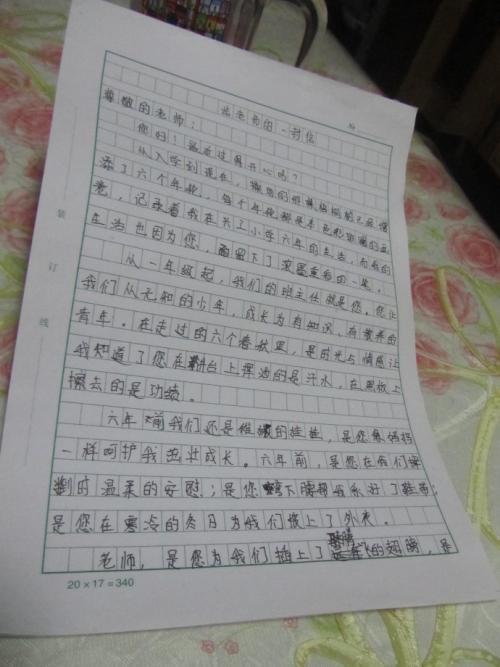 给老师的一封信
No
尊敬的老师：
您好！最近过得开心吗？
从入学到现在，
添了六个年轮，每个年轮都是
卷，记录着我在天工小学六年的生活，而我的
生活也因为您，而留下了浓墨重彩的一笔。
从一年级起，我们的班主任就是您。您让
我们从无知的少年，成长为有知识、有教养的
青年。在走过的六个春秋里，是时光与情感让
我知道了您在耕台上挥洒的是汗水，在黑板上
擦去的是功绩。
六年前我们还是稚嫩的娃娃，是您像妈妈
一样呵护我茁壮成长。六年前，是您在我们
时温柔的安慰；是您弯下腰帮我系好了鞋带；
是您在寒冷的冬日为我们披上了外衣。
老师，是您为我们插上了的翅膀，是
20×17=340
装
订
线